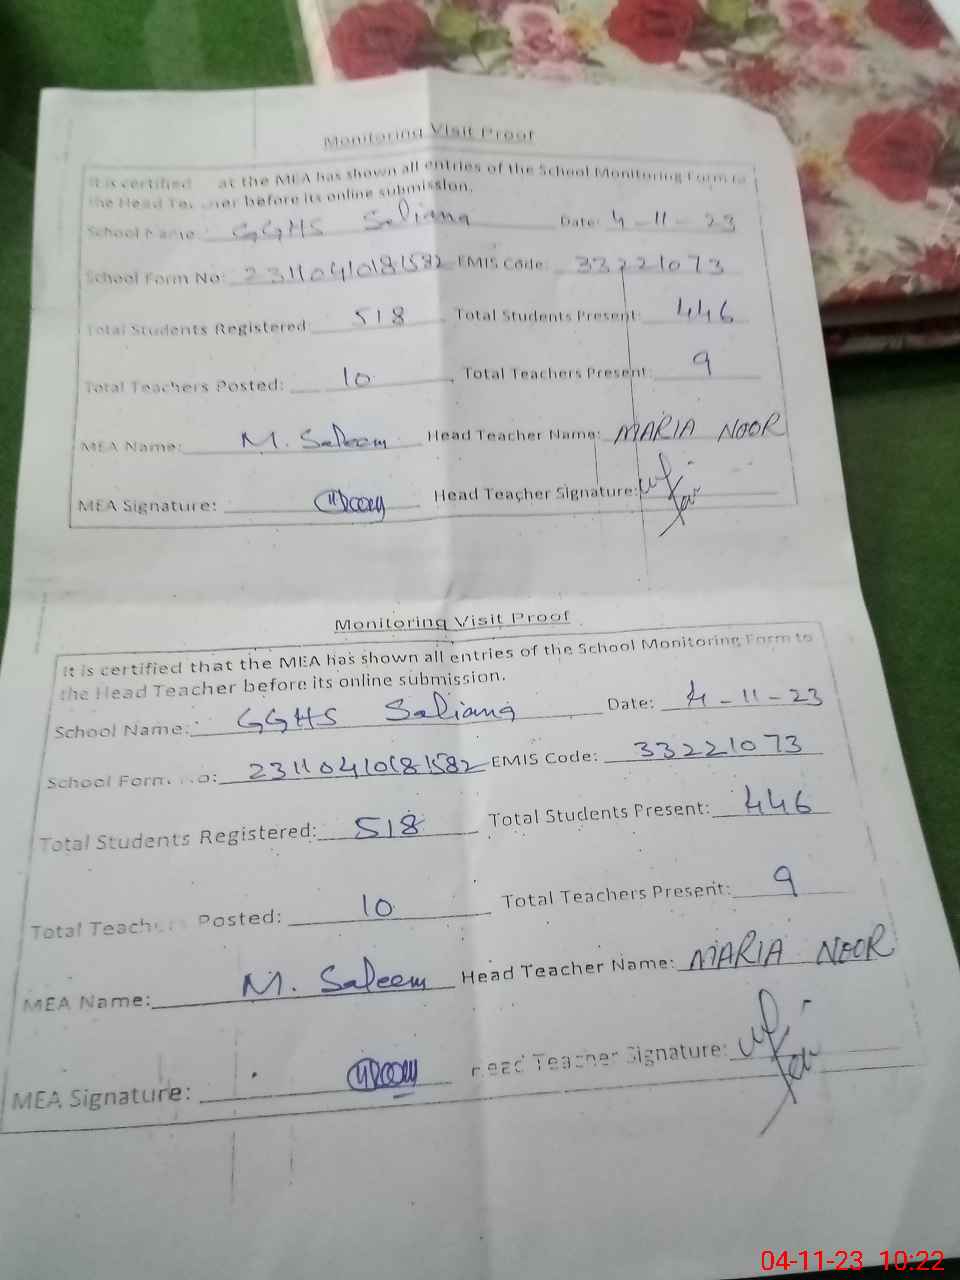 Monitoring Visit Proof
It is certified at the MEA has shown all entries of the School Monitoring Form to
the Head Teacher before its online submission.
School Name: GGHS Saliang Date: 4-11-23
School Form No: 23110410181582 EMIS Code: 33221073
Total Students Registered 518 Total Students Present: 446
Total Teachers Posted: 10 Total Teachers Present: 9
MEA Name: M. Saleem Head Teacher Name: MARIA NOOR
MEA Signature: Head Teacher Signature:
Monitoring Visit Proof
It is certified that the MEA has shown all entries of the School Monitoring Form to
the Head Teacher before its online submission.
School Name: GGHS Saliang Date: 4-11-23
School Form No: 23110410181582 EMIS Code: 33221073
Total Students Registered: 518 Total Students Present: 446
Total Teachers Posted: 10 Total Teachers Present: 9
MEA Name: M. Saleem Head Teacher Name: MARIA NOOR
MEA Signature: Head Teacher Signature:
04-11-23 10:22